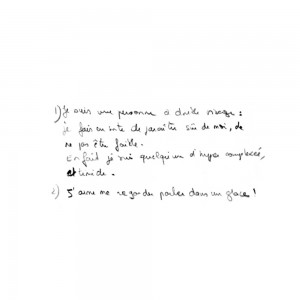 1) Je suis une personne à double visage :
je fais en sorte de paraître sûre de moi, de
ne pas être faible.
En fait je suis quelqu'un d'hyper complexé,
et timide.
2) J'aime me regarder parler dans une glace !